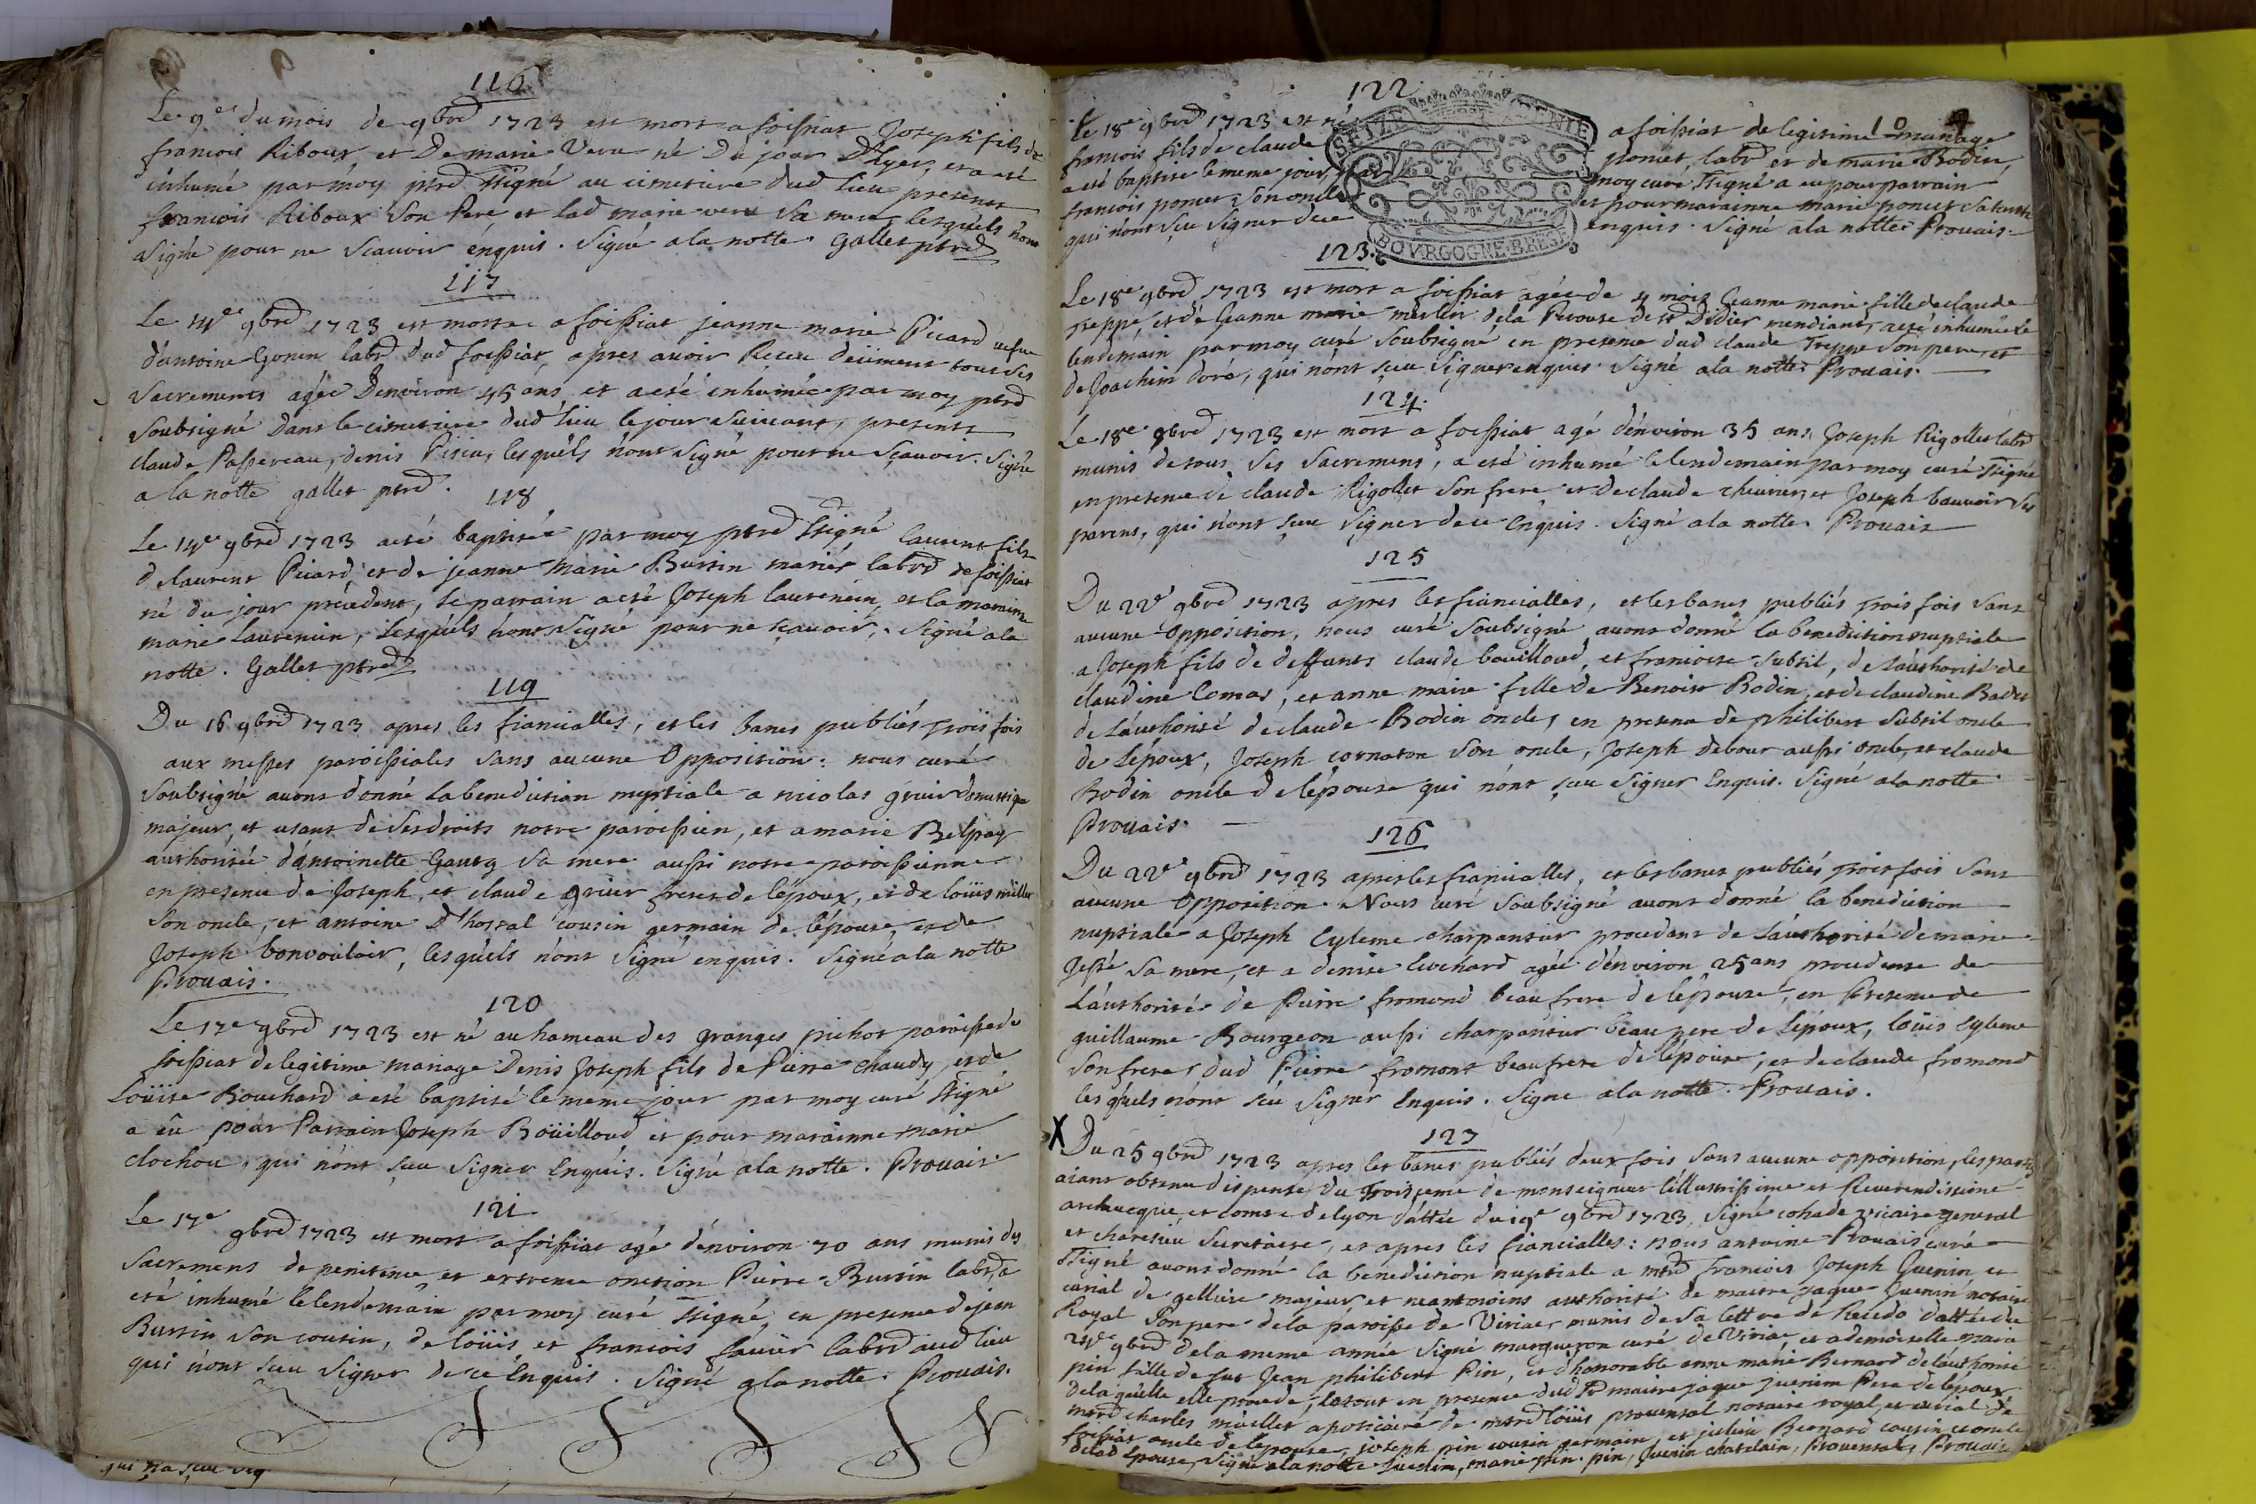 116
Le 9e du mois de 9brd 1723 est mort a foissiat Joseph fils de
francois Riboux, et De marie Veru né Du jour D'hyer, et a eté
inhumé par moy ptrd ssigné au cimetiere dud lieu presents
francois Riboux Son Pere, et lad marie veru Sa mere lesquels n'ont
signé pour ne Scavoir enquis. Signé a la notte. Gallet ptrd
117
Le 14e 9brd 1723 est morte a foissiat jeanne marie Picard vefve
d'antoine Gonin labrd dud foissiat, apres avoir Receu deüment tous ses
Sacrements agée D'environ 45 ans, et a eté inhumée par moy ptrd
soubsigné Dans le cimetiere dud lieu le jour suivant, presents
claude Passereau, denis Pisiu, lesquels n'ont signé pour ne scavoir. Signé
a la notte gallet ptrd.
118
Le 14e 9brd 1723 a eté baptisée par moy ptrd ssigné laurent fils
de laurent Picard, et de jeanne Marie Burtin mariés labrd de foissiat
né du jour précedent, le parrain a eté Joseph laurencin, et la marainne
marie Laurencin, lesquels n'ont signé pour ne scavoir. Signé a la
notte. Gallet ptrd
119
Du 16 9brd 1723 apres les fiancialles, et les bancs publiés trois fois
aux messes paroissiales sans aucune Opposition: nous curé
soubsigné avons donné la benediction nuptiale a nicolas gruier domestique
majeur, et usant de ses droits notre paroissien, et a marie Belpay
authorisée d'antoinette Gauty sa mere aussi notre paroissienne
en presence de Joseph, et claude gruier freres de l'époux, et de loüis müller
son oncle, et antoine D'hostal cousin germain de l'épouse et de
Joseph bonvouloir, lesquels n'ont signé enquis. Signé a la notte
Provais.
120
Le 17e 9brd 1723 est né au hameau des granges pichot paroisse de
foissiat de legitime mariage Denis Joseph fils de Pierre Chaudy, et de
Loüise Bouchard a eté baptisé le meme jour par moy curé ssigné
a eu pour Parrain Joseph Boüilloud et pour marainne marie
clochon, qui n'ont sçeu signer Enquis. Signé a la notte. Provais.
121
Le 17e 9brd 1723 est mort a foissiat agé d'environ 70 ans munis des
Sacremens de penitence et extreme onction Pierre Burtin labrd, a
eté inhumé le lendemain par moy curé ssigné, en presence de jean
Burtin son cousin, de loüis et francois favier labrd aud lieu
qui n'ont sceu signer de ce Enquis. Signé a la notte. Provais.
qui n'a sceu sig
122
10
Le 18e 9brd 1723 est né a foissiat de legitime mariage
francois fils de claude poncet, labrd et de marie Bodin,
a eté baptisé le meme jour, par moy curé ssigné a eu pour parrain
francois poncet son oncle et pour marainne marie poncet sa tante
qui n'ont sçu signer de ce enquis. Signé a la notte Provais.
SEIZE
BOVRGOGNE BRESSE
123.
Le 18e 9brd 1723 est mort a foissiat agée de 4 mois Jeanne marie fille de claude
Treppe, et de Jeanne marie merlin de la Perouse de St Didier mendiant, a eté inhumée le
lendemain par moy curé soubsigné en presence dud claude Treppe son pere, et
de Joachim doré, qui n'ont sçeu signer enquis. Signé a la notte Provais.
124.
Le 18e 9brd 1723 est mort a foissiat agé d'environ 35 ans, Joseph Rigollet labrd
munis de tous ses Sacremens, a eté inhumé le lendemain par moy curé ssigné
en presence de claude Rigollet son frere et de claude chevrier et Joseph bauvoir ses
parens, qui n'ont sceu signer de ce Enquis. Signé a la notte. Provais
125
Du 22e 9brd 1723 apres les fiancialles, et les bancs publiés trois fois sans
aucune Opposition, nous curé soubsigné avons donné la benediction nuptiale
a Joseph fils de deffunts claude bouilloud, et francoise subtil, de L'authorité de
claudine Comas, et anne marie fille de Benoist Bodin, et de claudine Badet
de L'authorité de claude Bodin oncle, en presence de philibert subtil oncle
de L'époux, Joseph cornaton son oncle, Joseph debour aussi oncle, et claude
Bodin oncle de l'épouse qui n'ont sçeu signer Enquis. Signé a la notte
Provais.
126
Du 22e 9brd 1723 apres les fiancialles, et les bancs publiés trois fois sans
aucune Opposition. Nous curé soubsigné avons donné la benediction
nuptiale a Joseph Cyleme charpantier procedant de L'authorité de marie
Jesse sa mere, et a denise Cuchard agée d'environ 25 ans procedente de
L'authorité de Pierre fromond beaufrere de l'épouse, en Presence de
guillaume Bourgeon aussi charpantier beau pere de L'époux, loüis Cyleme
son frere, dud Pierre fromont beaufrere de l'épouse, et de claude fromond
lesquels n'ont sçu signer Enquis. Signé a la notte. Provais.
127
X Du 25 9brd 1723 apres les bancs publiés deux fois sans aucune opposition, les parties
aiant obtenu dispense du Troisieme de monseigneur l'illustrissime et Reverendissime
archeveque, et comte de lyon dattée du 19e 9brd 1723, Signé cohade vicaire general
et charetieu secretaire, et apres les fiancialles: nous antoine Provais curé
ssigné avons donné la benediction nuptiale a mtrd francois Joseph Juenin et
curial de gelliere majeur et neantmoins authorisé de maitre jaque Juenin notaire
Royal son pere de la paroisse de Viriat munis de sa lettre de Recedo dattée du
24e 9brd de la meme année Signé margueron curé de Viriat, et a demoiselle marie
pin fille de fut Jean philibert Pin, et d'honorable anne marie Bernard de l'authorité
de laquelle elle procede, le tout en presence dud Sd maitre jaque Juenin Pere de l'époux
mtrd charles miellet apoticaire de mtrd loüis provensal notaire royal, et curial de
foissiat oncle de l'épouse, Joseph pin cousin germain, et julien Bernard cousin et oncle
de lad Epouse, Signé a la notte Juenin, marie pin. pin, Juenin chatelain, Provensal, Provais.